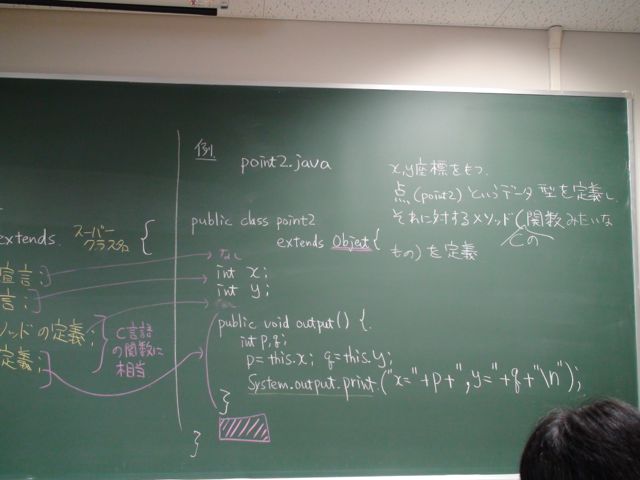 extends. スーパークラス名 {
宣言;
言;
ソッドの定義;
定義;
C言語
の関数に
相当
例
point2.java
public class point2
extends Object {
なし
int x;
int y;
なし
public void output() {
int p,q;
p=this.x; q=this.y;
System.output.print("x="+p+",y="+q+"\n");
}
}
x,y座標をもつ
点(point2)というデータ型を定義し
それに対するメソッド(関数みたいな
Cの
もの)を定義